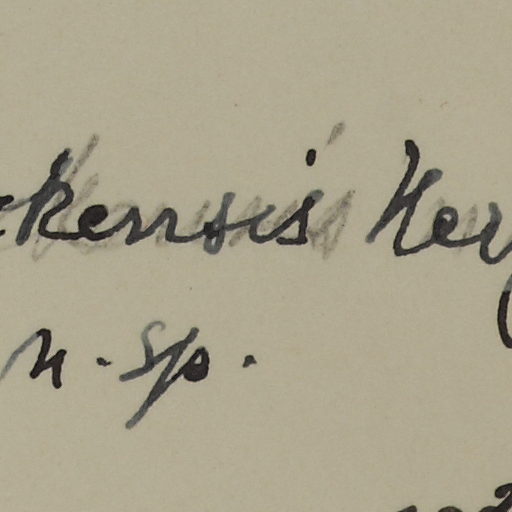 kensis Her
n. sp.